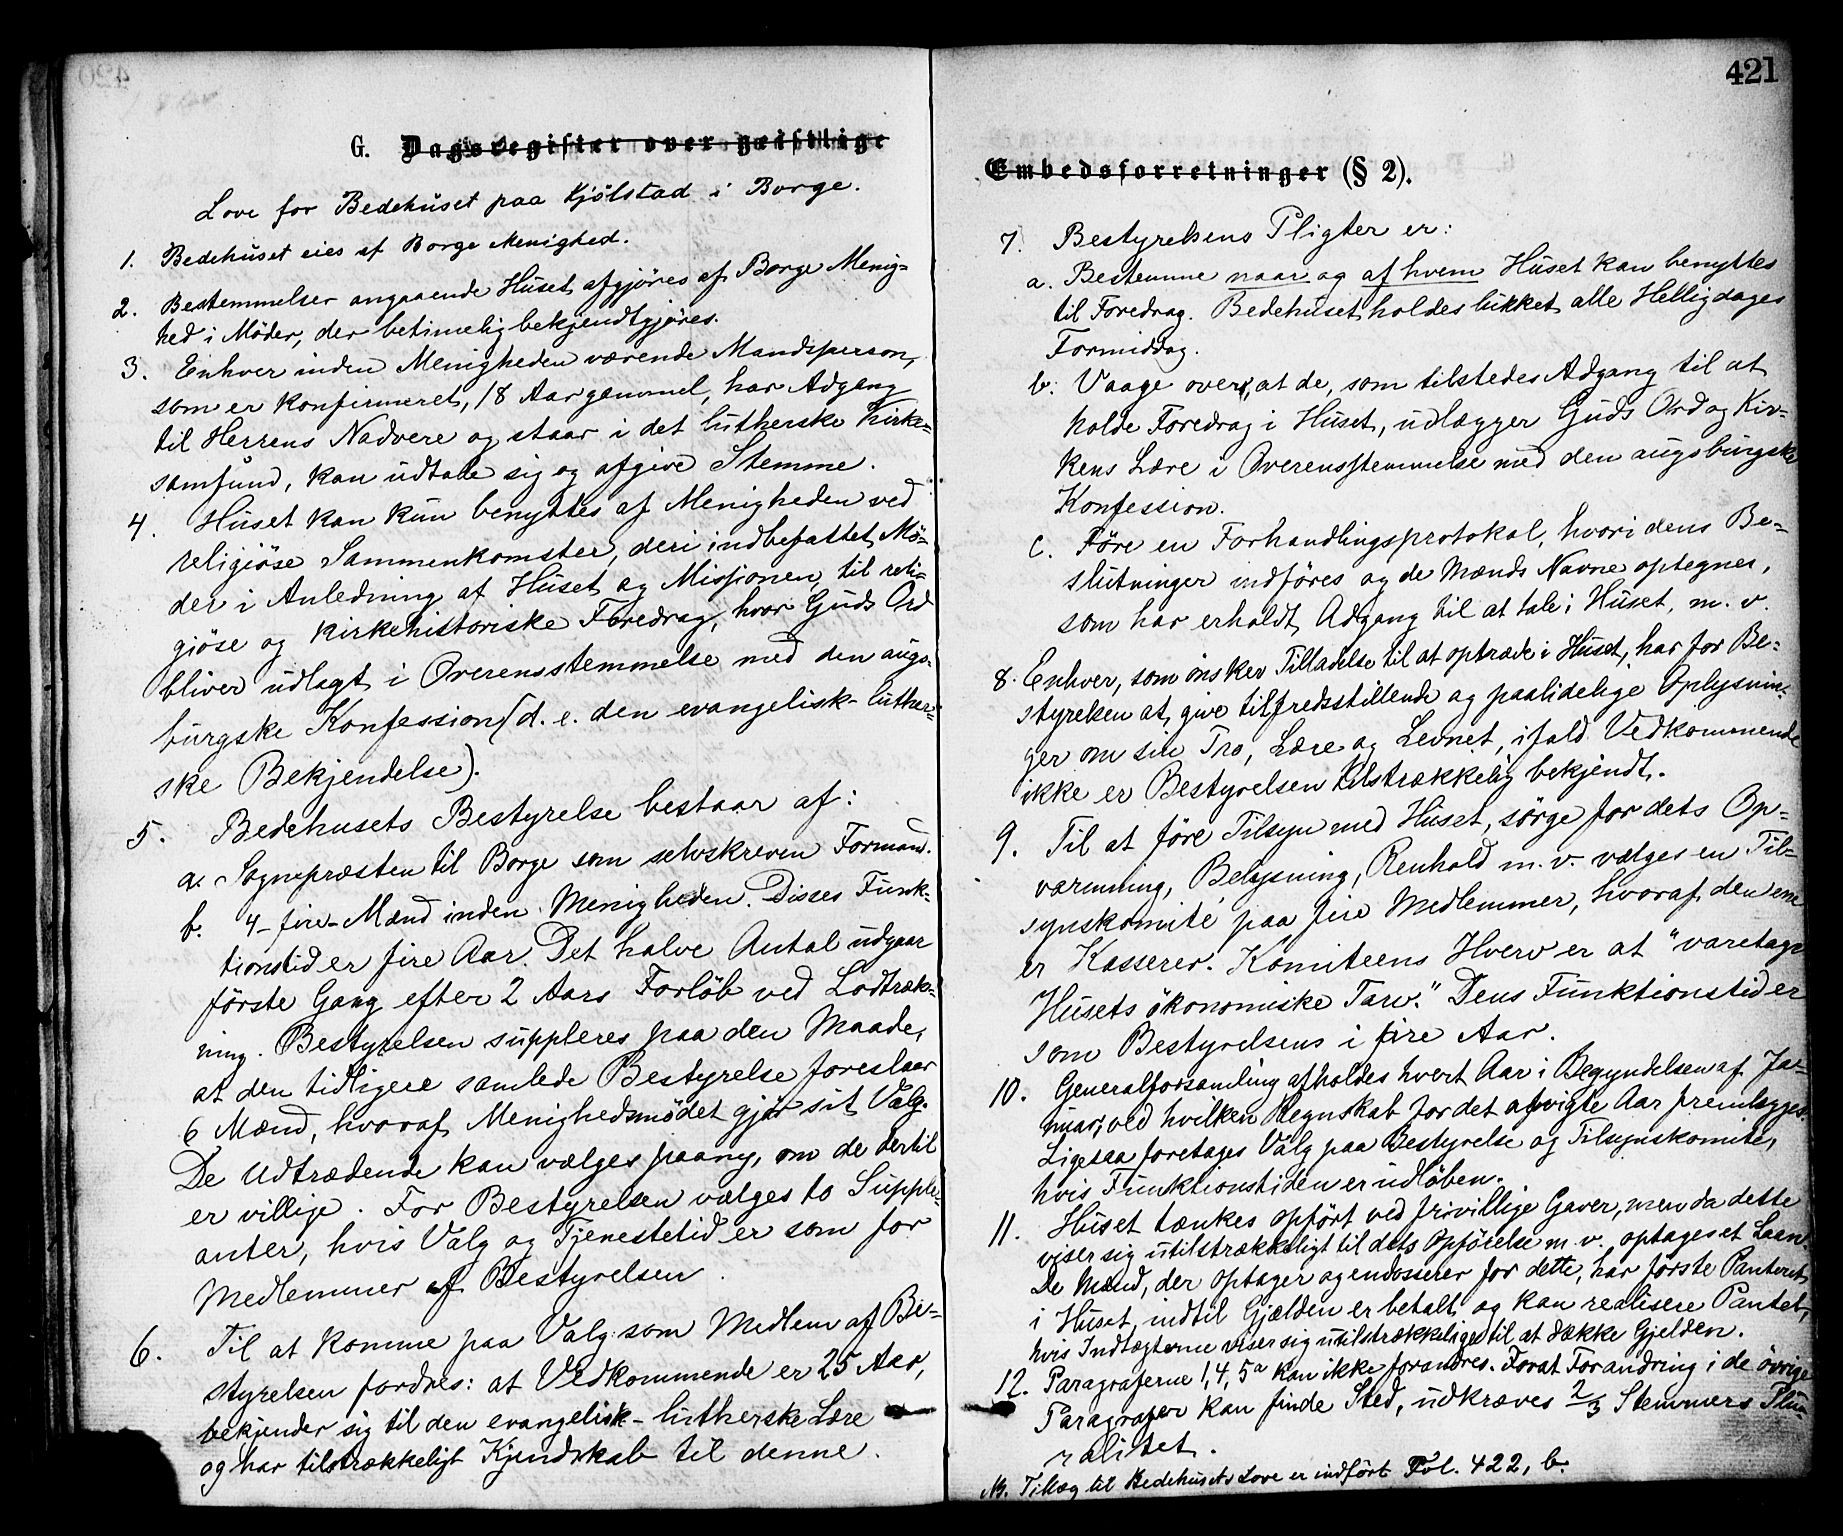 G. Dagsregister over geistlige
Love for Bedehuset paa Kjölstad i Borge.
1. Bedehuset eies af Borge Menighed.
2. Bestemmelser angaaende Huset afgjöres af Borge Menig=
hed i Möder, der betimelig bekjendtgjöres.
3. Enhver inden Menigheden værende Mandsperson,
som er konfirmeret, 18 Aar gammel, har Adgang
til Herrens Nadvere og staar i det lutherske Kirke=
samfund, kan udtale sig og afgive Stemme.
4. Huset kan kun benyttes af Menigheden ved
religiöse Sammenkomster, deri indbefattet Mö=
der i Anledning af Huset og Missionen, til reli=
giöse og kirkehistoriske Foredrag, hvor Guds Ord
bliver udlagt i Overensstemmelse med den augs=
burgske Konfession (d. e. den evangelisk-luther=
ske Bekjendelse).
5. Bedehusets Bestyrelse bestaar af:
a. Sognepræsten til Borge som selvskreven Formand.
b. 4-fire-Mænd inden Menigheden. Disses Funk=
tionstid er fire Aar. Det halve Antal udgaar
förste Gang efter 2 Aars Forlöb ved Lodtræk=
ning. Bestyrelsen suppleres paa den Maade,
at den tidligere samlede Bestyrelse foreslaar
6 Mænd, hvoraf Menighedsmödet gjör sit Valg.
De Udtrædende kan vælges paany, om de dertil
er villige. For Bestyrelsen vælges to Supple=
anter, hvis Valg og Tjenestetid er som for
Medlemmer af Bestyrelsen.
6. Til at komme paa Valg som Medlem af Be=
styrelsen fordres: at Vedkommende er 25 Aar,
bekjender sig til den evangelisk-lutherske Lære
og har tilstrækkeligt Kjendskab til denne.
421
Embedsforretninger (§ 2).
7. Bestyrelsens Pligter er:
a. Bestemme naar og af hvem Huset kan benyttes
til Foredrag. Bedehuset holdes lukket alle Helligdages
Formiddag.
b. Vaage over, at de, som tilstedes Adgang til at
holde Foredrag i Huset, udlægger Guds Ord og Kir=
kens Lære i Overensstemmelse med den augsburgske
Konfession.
c. Före en Forhandlingsprotokol, hvori dens Be=
slutninger indföres og de Mænds Navne optegnes,
som har erholdt Adgang til at tale i Huset, m. v.
8. Enhver, som önsker Tilladelse til at optræde i Huset, har for Be=
styrelsen at give tilfredsstillende og paalidelige Oplysnin=
ger om sin Tro, Lære og Levnet, ifald Vedkommende
ikke er Bestyrelsen tilstrækkelig bekjendt.
9. Til at före Tilsyn med Huset, sörge for dets Op=
varmning, Belysning, Renhold m. v. vælges en Til=
synskomité paa fire Medlemmer, hvoraf den ene
er Kasserer. Komiteens Hverv er at "varetage
Husets ökonomiske Tarv." Dens Funktionstid er
som Bestyrelsens i fire Aar.
10. Generalforsamling afholdes hvert Aar i Begyndelsen af Ja=
nuar, ved hvilken Regnskab for det afvigte Aar fremlægges.
Ligesaa foretages Valg paa Bestyrelse og Tilsynskomite,
hvis Funktionstiden er udlöben.
11. Huset tænkes opfört ved frivillige Gaver, men da dette
viser sig utilstrækkeligt til dets Opförelse m. v. optages et Laan.
De Mænd, der optager og endosserer for dette, har förste Panteret
i Huset, indtil Gjælden er betalt og kan realisere Pantet,
hvis Indtægterne viser sig utilstrækkelige til at dække Gjelden.
12. Paragraferne 1, 4, 5a kan ikke forandres. Forat Forandring i de övrige
Paragrafer kan finde Sted, udkræves 2/3 Stemmers Plu=
ralitet.
NB. Tillæg til Bedehusets Love er indfört Fol. 422, b.